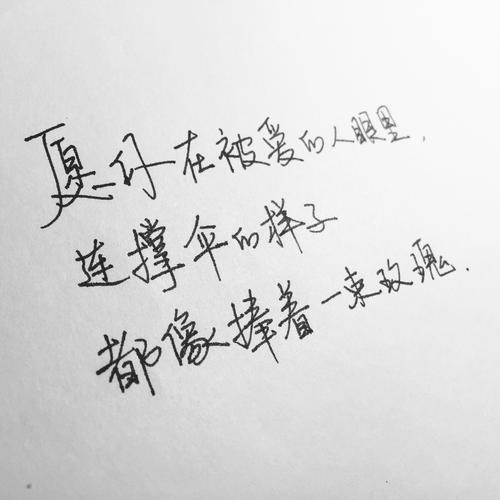 在被爱的人眼里,
连撑伞的样子
都像捧着一束玫瑰.